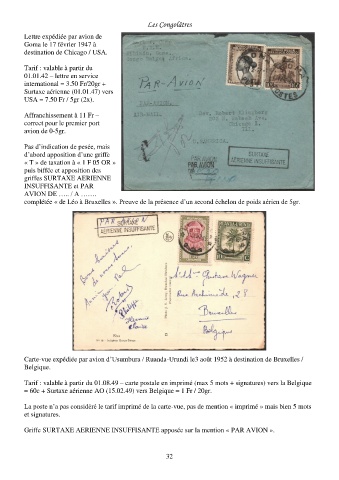 Les Congolâtres
Lettre expédiée par avion de
Goma le 17 février 1947 à
destination de Chicago / USA.
Tarif : valable à partir du
01.01.42 – lettre en service
international = 3.50 Fr/20gr +
Surtaxe aérienne (01.01.47) vers
USA = 7.50 Fr / 5gr (2x).
Affranchissement à 11 Fr –
correct pour le premier port
avion de 0-5gr.
Pas d'indication de pesée, mais
d'abord apposition d'une griffe
« T » de taxation à « 1 F 05 OR »
puis biffée et apposition des
griffes SURTAXE AERIENNE
INSUFFISANTE et PAR
AVION DE ….. / A …….
complétée « de Léo à Bruxelles ». Preuve de la présence d'un second échelon de poids aérien de 5gr.
PAR-AVION
PAR AVION
SURTAXE
AÉRIENNE INSUFFISANTE
PAR AVION
SURTAXE
AÉRIENNE INSUFFISANTE
Gustave Wagner
Rue Archimède, 28
Bruxelles
Belgique
Carte-vue expédiée par avion d'Usumbura / Ruanda-Urundi le3 août 1952 à destination de Bruxelles /
Belgique.
Tarif : valable à partir du 01.08.49 – carte postale en imprimé (max 5 mots + signatures) vers la Belgique
= 60c + Surtaxe aérienne AO (15.02.49) vers Belgique = 1 Fr / 20gr.
La poste n'a pas considéré le tarif imprimé de la carte-vue, pas de mention « imprimé » mais bien 5 mots
et signatures.
Griffe SURTAXE AERIENNE INSUFFISANTE apposée sur la mention « PAR AVION ».
32